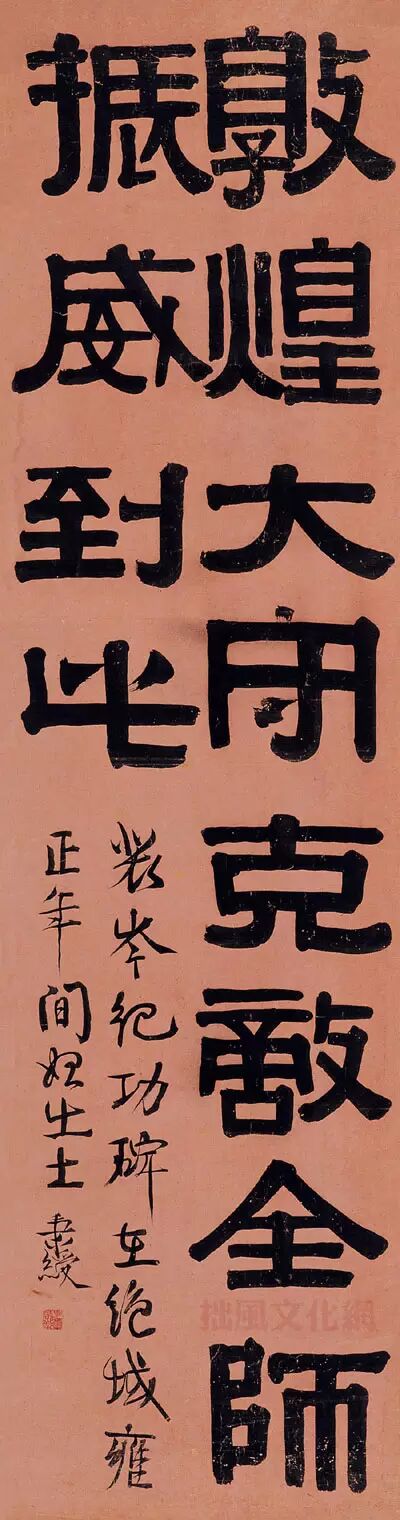 敦煌大守克敵全師
振威到此
裴岑紀功碑在絶域雍
正年間始出土 秉綬
拙風文化網